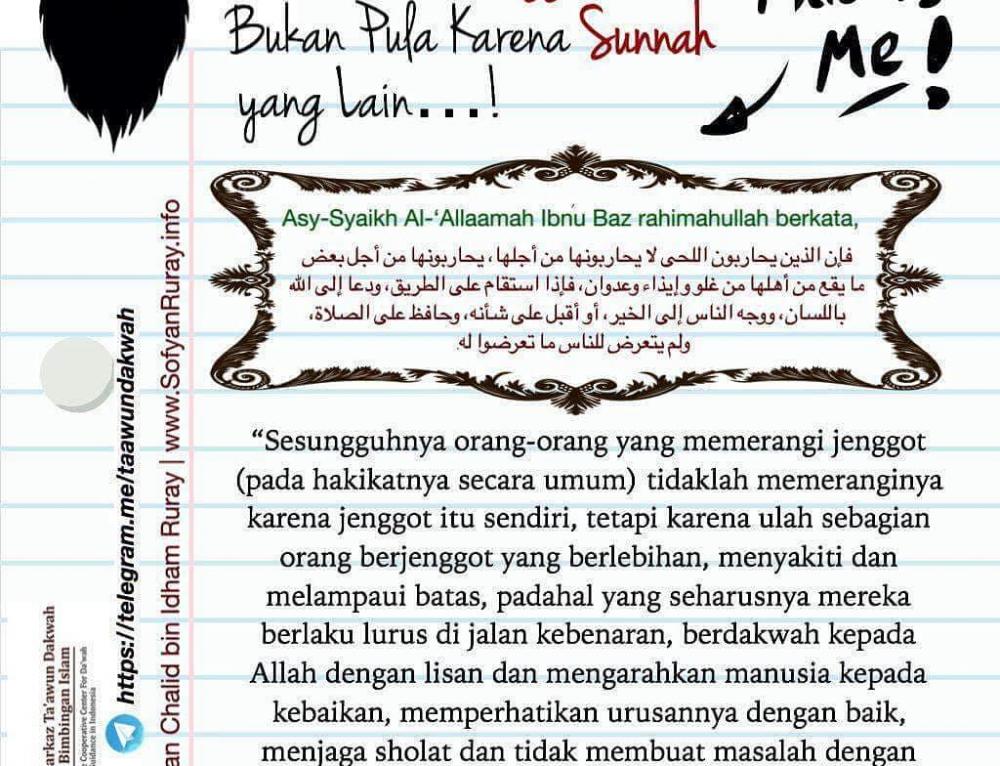 Bukan Pula Karena Sunnah
yang Lain...!
Me!
Asy-Syaikh Al-‘Allaamah Ibnu Baz rahimahullah berkata,
فإن الذين يحاربون اللحى لا يحاربونها من أجلها، يحاربونها من أجل بعض
ما يقع من أهلها من غلو وإيذاء وعدوان، فإذا استقام على الطريق، ودعا إلى الله
باللسان، ووجه الناس إلى الخير، أو أقبل على شأنه، وحافظ على الصلاة،
ولم يتعرض للناس ما تعرضوا له.
“Sesungguhnya orang-orang yang memerangi jenggot
(pada hakikatnya secara umum) tidaklah memeranginya
karena jenggot itu sendiri, tetapi karena ulah sebagian
orang berjenggot yang berlebihan, menyakiti dan
melampaui batas, padahal yang seharusnya mereka
berlaku lurus di jalan kebenaran, berdakwah kepada
Allah dengan lisan dan mengarahkan manusia kepada
kebaikan, memperhatikan urusannya dengan baik,
menjaga sholat dan tidak membuat masalah dengan
an Chalid bin Idham Ruray | www.SofyanRuray.info
https://telegram.me/taawundakwah
arkaz Ta'awun Dakwah
Bimbingan Islam
Cooperative Center For Da'wah
Guidance in Indonesia